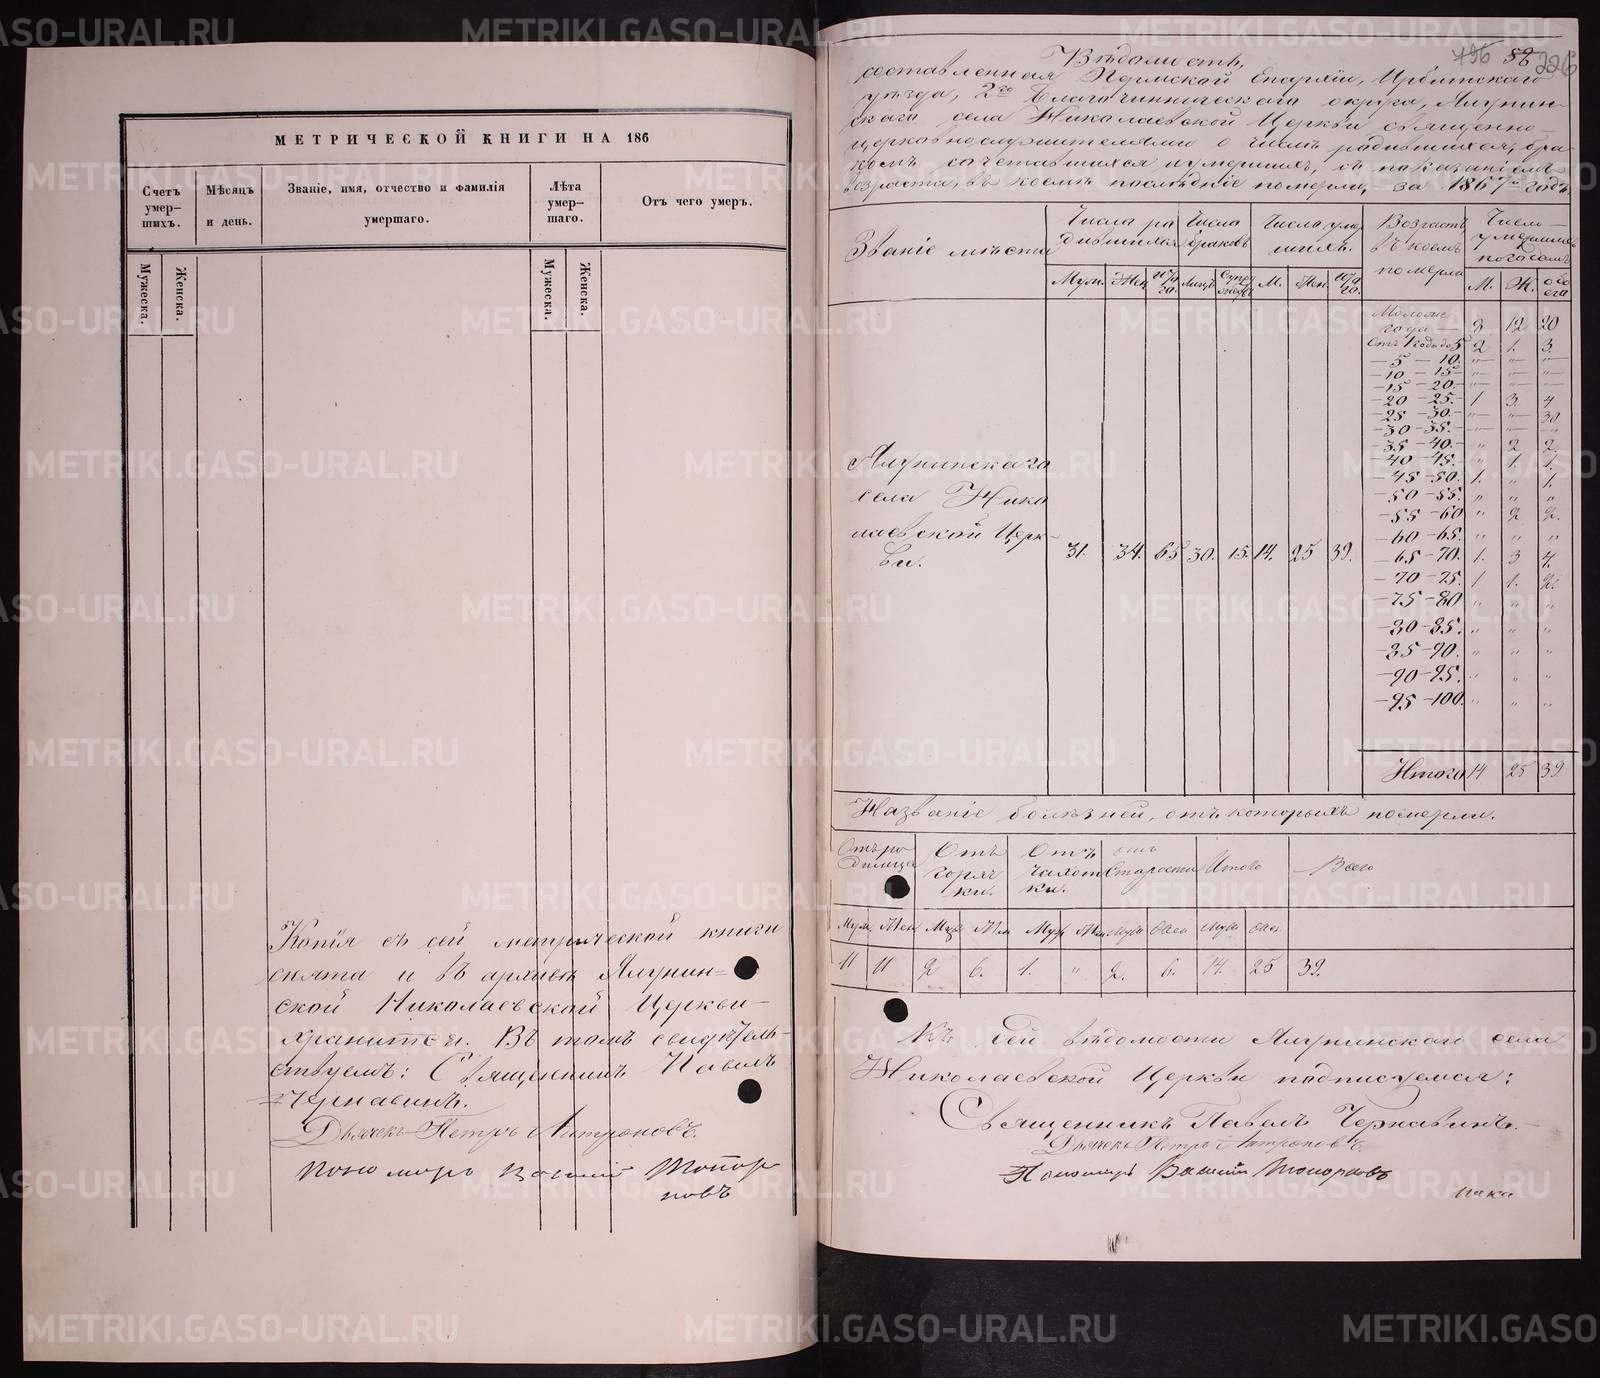 МЕТРИЧЕСКОЙ КНИГИ НА 186
Счетъ умер-шихъ.
Мѣсяцъ и день.
Званіе, имя, отчество и фамилія умершаго.
Лѣта умер-шаго.
Отъ чего умеръ.
Мужеска.
Женска.
Мужеска.
Женска.
Копія съ сей метрической книги
снята и въ архивѣ Ялунин=
ской Николаевской Церкви
хранится. Въ томъ свидѣтель-
ствуемъ: Священникъ Павелъ
Чернавинъ.
Дьячекъ Петръ
Пономарь Василій Топор
ковъ
796 58 226
Вѣдомость,
составленная Пермской Епархіи, Ирбитскаго
уѣзда, 2го Благочинническаго округа, Ялунин-
скаго села Николаевской Церкви священно-
церковнослужителями о числѣ родившихся, бра-
комъ сочетавшихся и умершихъ, съ показаніемъ
возраста, въ коемъ послѣдніе померли, за 1867й годъ.
Званіе мѣста
Числа ро дившихся
Числа браковъ
Числа умер шихъ.
Возрастъ въ коемъ померли
Число умершихъ по
Муж. Жен. Ито го. Лицъ М. Жен. Ито го. М. Ж. обо его
года — 12 20
Отъ 1 года до 5 2 1. 3.
— 5 — 10. — „ — „ — „ —
— 10 — 15 — „ — „ — „ —
— 15 — 20. — „ — „ — „ —
— 20 — 25. 1 3. 4
— 25 — 30. — „ —
— 30 — 35. —
— 35 — 40. „ 2 2.
— 40 — 45. „ 1. 1.
— 45 — 50. 1. „ 1.
— 50 — 55. „ „ „
— 55 — 60 „ 2 2.
— 60 — 65. „ „ „
— 65 — 70. 1. 3 4.
— 70 — 75. 1 1. 2.
— 75 — 80 „ „ „
— 80 — 85. „ „ „
— 85 — 90. „ „ „
— 90 — 95. „ „ „
— 95 — 100. „ „ „
Итого 14 25 39
Ялунинскаго
села Нико
лаевской Церк-
ви.
31. 34. 65 30. 15. 14. 25 39.
Названіе болѣзней, отъ которыхъ померли.
Отъ ро димца
Отъ горяч ки.
Отъ чахот ки.
отъ Старости
Итого
Всего
Муж. Жен Муж Жен Муж Жен муж жен муж жен.
11 2 6. 1. „ 2. 6. 14. 25 39.
Къ сей вѣдомости Ялунинскаго села
Николаевской Церкви подписуемся:
Священникъ Павелъ Чернавинъ. —
Дьячекъ Петръ
Пономарь Василій Топорковъ
METRIKI.GASO-URAL.RU